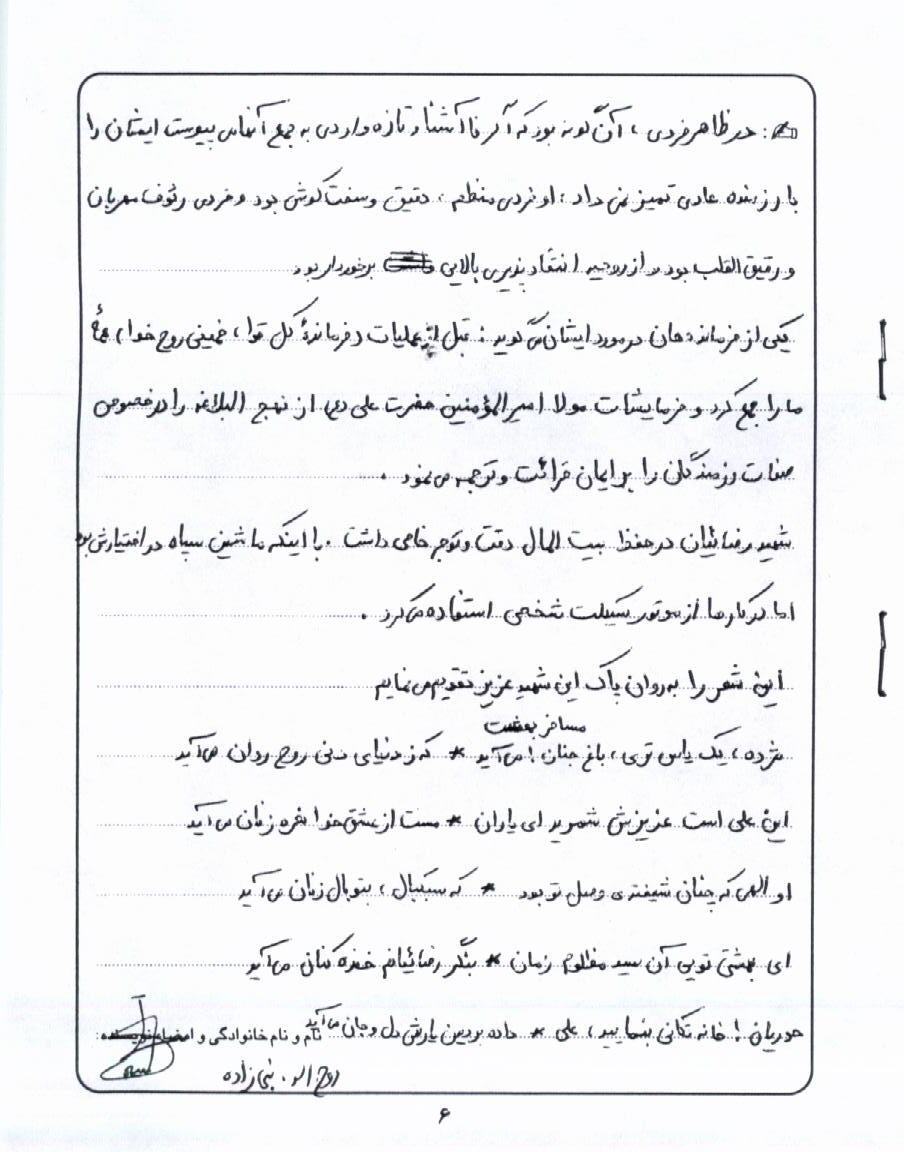 در ظاهر فردی ، آن گونه بود که اگر نا آشنا و تازه واردی به جمع آنها می پیوست ایشان را
با رزمنده عادی تمیز نمی داد ، او فردی منظم ، دقیق و سخت کوش بود و فردی رئوف مهربان
و رقیق القلب بود و از روحیه انتقاد پذیری بالایی برخوردار بود
یکی از فرماندهان در مورد ایشان می گوید : قبل از عملیات ، فرماندهٔ کل قوا ، خمینی روح خدا ،
ما را جمع کرد و فرمایشات مولا امیرالمؤمنین حضرت علی (ع) از نهج البلاغه را در خصوص
صفات رزمندگان را برایمان قرائت و ترجمه می نمود .
شهید رضائیان در حفظ بیت المال دقت و توجه خاصی داشت . با اینکه ماشین سپاه در اختیارش بود
اما در کارها از موتور سیکلت شخصی استفاده می کرد .
این شعر را به روان پاک این شهید عزیز تقدیم می نمایم
مسافر بهشت
مژده ، یک یاس توی ، باغ جنان ! می آید * که ز دنیای دنی روح روان می آید
این علی است عزیزش شمرید ای یاران * مست از عشق خدا نعره زنان می آید
او الهی که چنان شیفته ی وصل تو بود * که سبکبال ، بتو بال زنان می آید
ای بهشتی تویی آن سید مظلوم زمان * بنگر رضائیانم خنده کنان می آید
حوریان ! خانه تکانی بنمایید ، علی * داده بر دین یارش دل و جان می آید
نام و نام خانوادگی و امضاء نویسنده:
روح اله . نبی زاده
۶